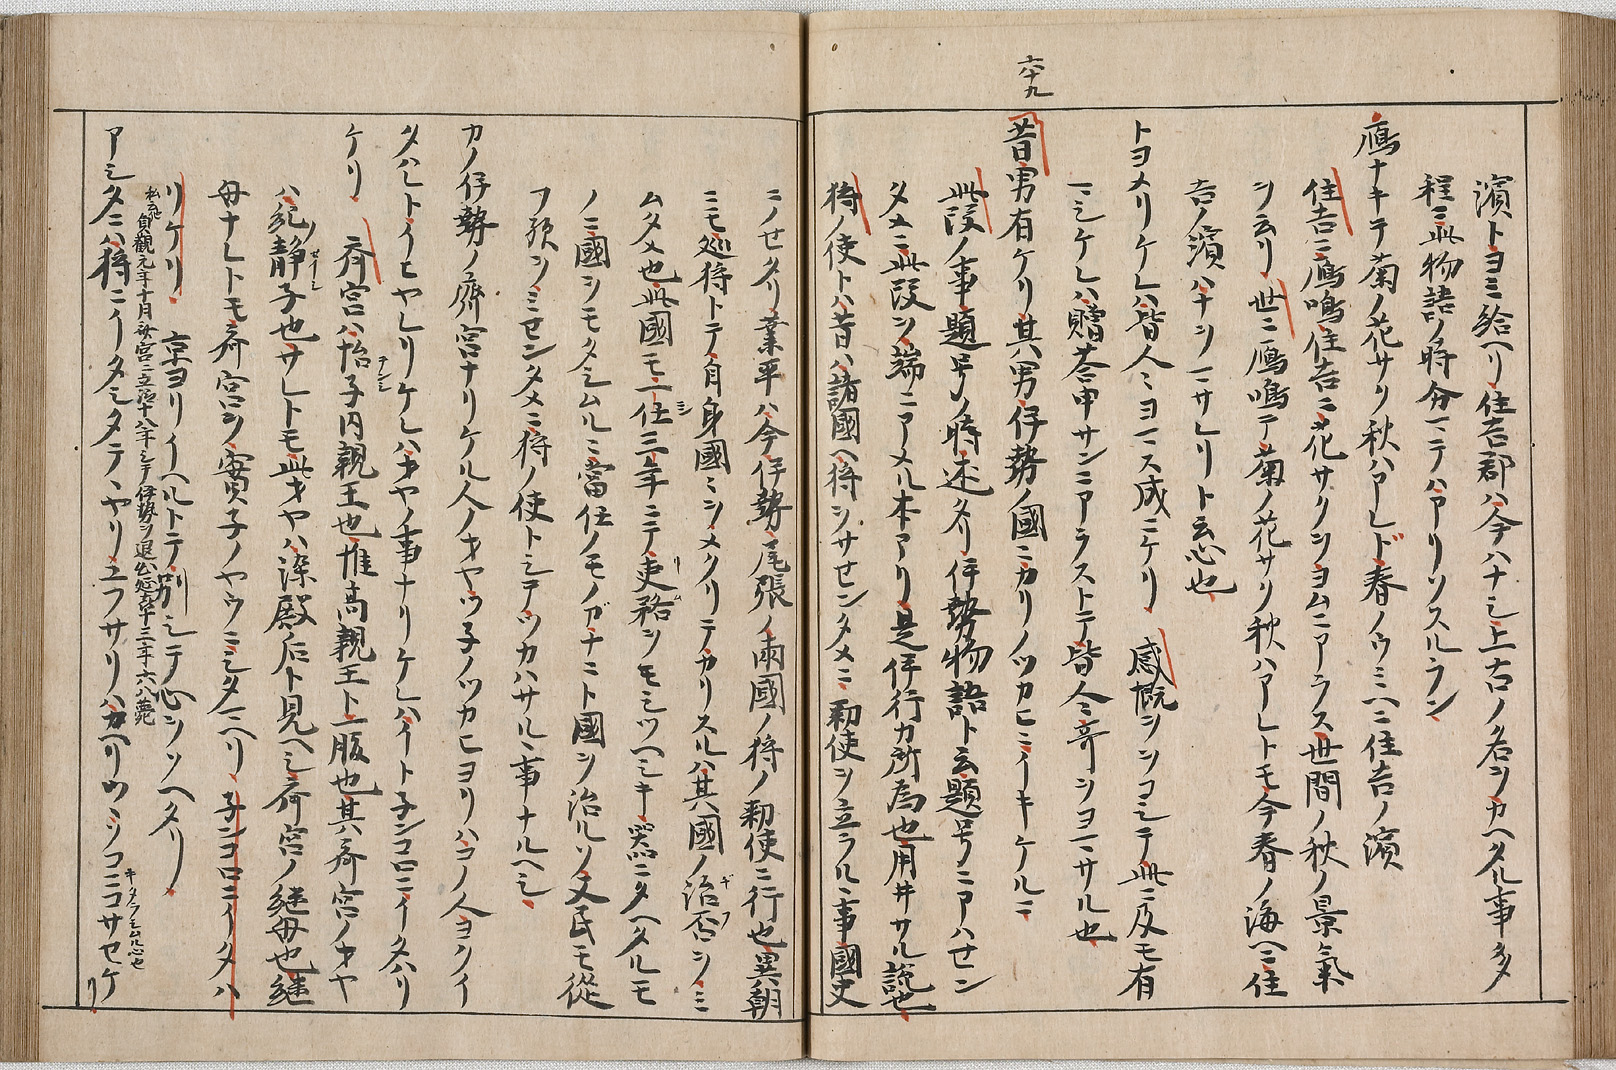 六十九
濱トヨミ給ヘリ住吉郡ハ今ハナシ上古ノ名ヲカヘタル事多
程ニ此物語ノ時分マテハアリツスルラン
鴈ナキテ菊ノ花サク秋ハアレド春ノウミヘニ住吉ノ濱
住吉ニ鴈鳴住吉ニ花サクヲヨムニアラス世間ノ秋ノ景氣
ヲ云リ世ニ鴈鳴テ菊ノ花サク秋ハアレトモ今春ノ海ヘニ住
吉ノ濱ハナヲマサレリト云心也
トヨメリケレハ皆人ミヨマス成ニケリ 感慨ヲツコミテ此ニ及モ有
マシケレハ贈荅申サンニアラストテ皆人哥ヲヨマサル也
昔男有ケリ其男伊勢ノ國ニカリノツカヒニイキケルニ
此段ノ事題号ノ時述タリ伊勢物語ト云題号ニアハセン
タメニ此段ヲ端ニアメル本アリ是伊行カ所為也用井サル説也
狩ノ使トハ昔ハ諸國ヘ狩ヲサセンタメニ勅使ヲ立ラルヽ事國史
ニノせタリ業平ハ今伊勢尾張ノ兩國ノ狩ノ勅使ニ行也異朝
ニモ巡狩トテ自身國ミヲメクリテカリスルハ其國ノ治否ヲミ
ムタメ也此國モ一任三年ニテ吏務ヲモミツヘキ器ニタヘタルモ
ノニ國ヲモタシムルニ當任ノモノガナニト國ヲ治ルソ又民モ從
フ歟ヲミせンタメニ狩ノ使トシテツカハサルヽ事ナルヘシ
カノ伊勢ノ齋宮ナリケル人ノオヤツ子ノツカヒヨリハコノ人ヨクイ
タハレトイヒヤレリケレハオヤノ事ナリケレハイトネンコロニイタハリ
ケリ 斎宮ハ恬子内親王也惟喬親王ト一腹也其斎宮ノオヤ
ハ紀静子也サレトモ此オヤハ染殿后ト見ヘシ斎宮ノ継母也継
母ナレトモ斎宮ヲ實子ノヤウニシタマヘリ 子ンコロニイタハ
リケリ 京ヨリイヘルトテ別シテ心ヲソヘタリ
私云此貞觀元年十月為斎宮ニ立治十八年シテ伊勢ヲ退出延喜十三年六八薨
アシタニハ狩ニイタシタテヽヤリユフサリハカヘリツヽソコニコサセケ
キタラシムル心也
リ